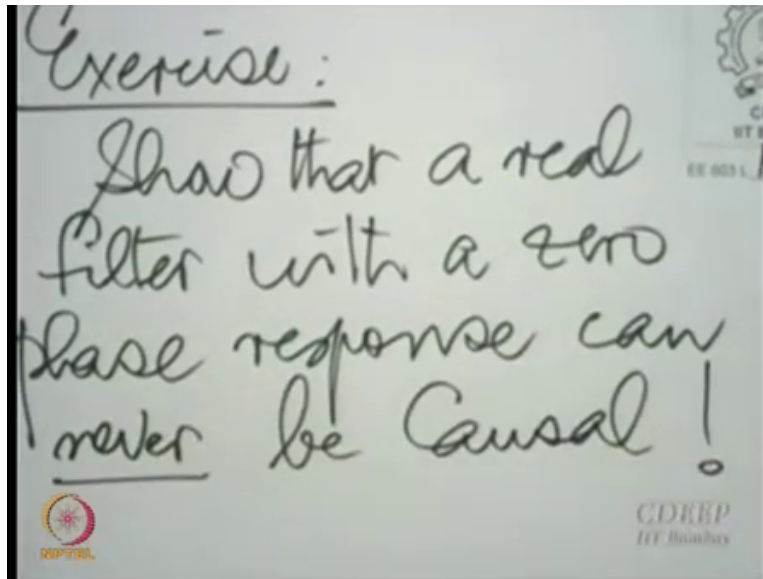 Exercise:
Show that a real
filter with a zero
phase response can
never be Causal!
EE 603 L
NPTEL
CDEEP
IIT Bombay